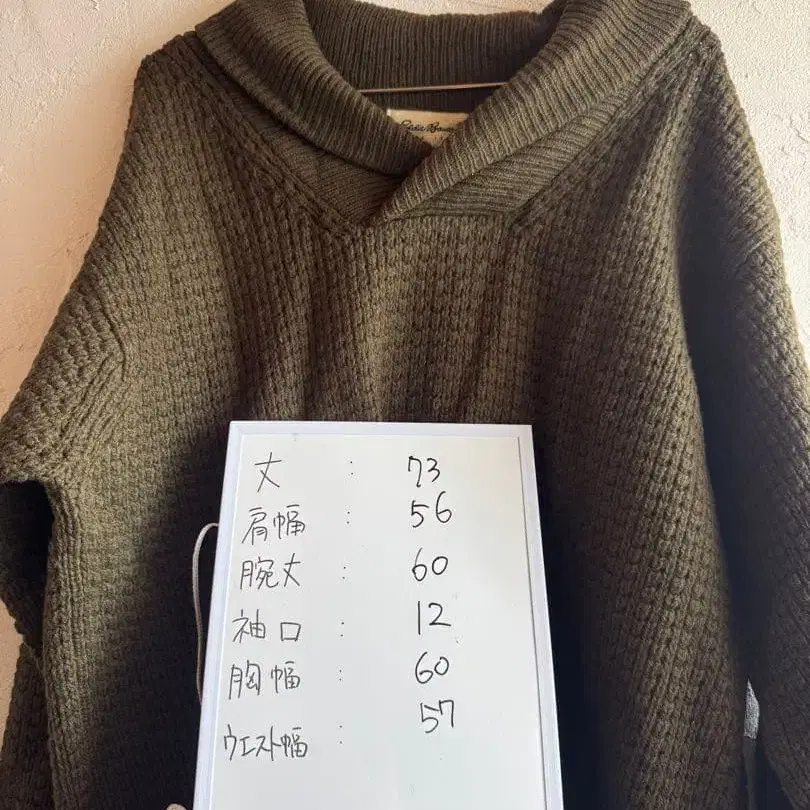 Eddie Bauer
丈 : 73
肩幅 : 56
腕丈 : 60
袖口 : 12
胸幅 : 60
ウエスト幅 : 57